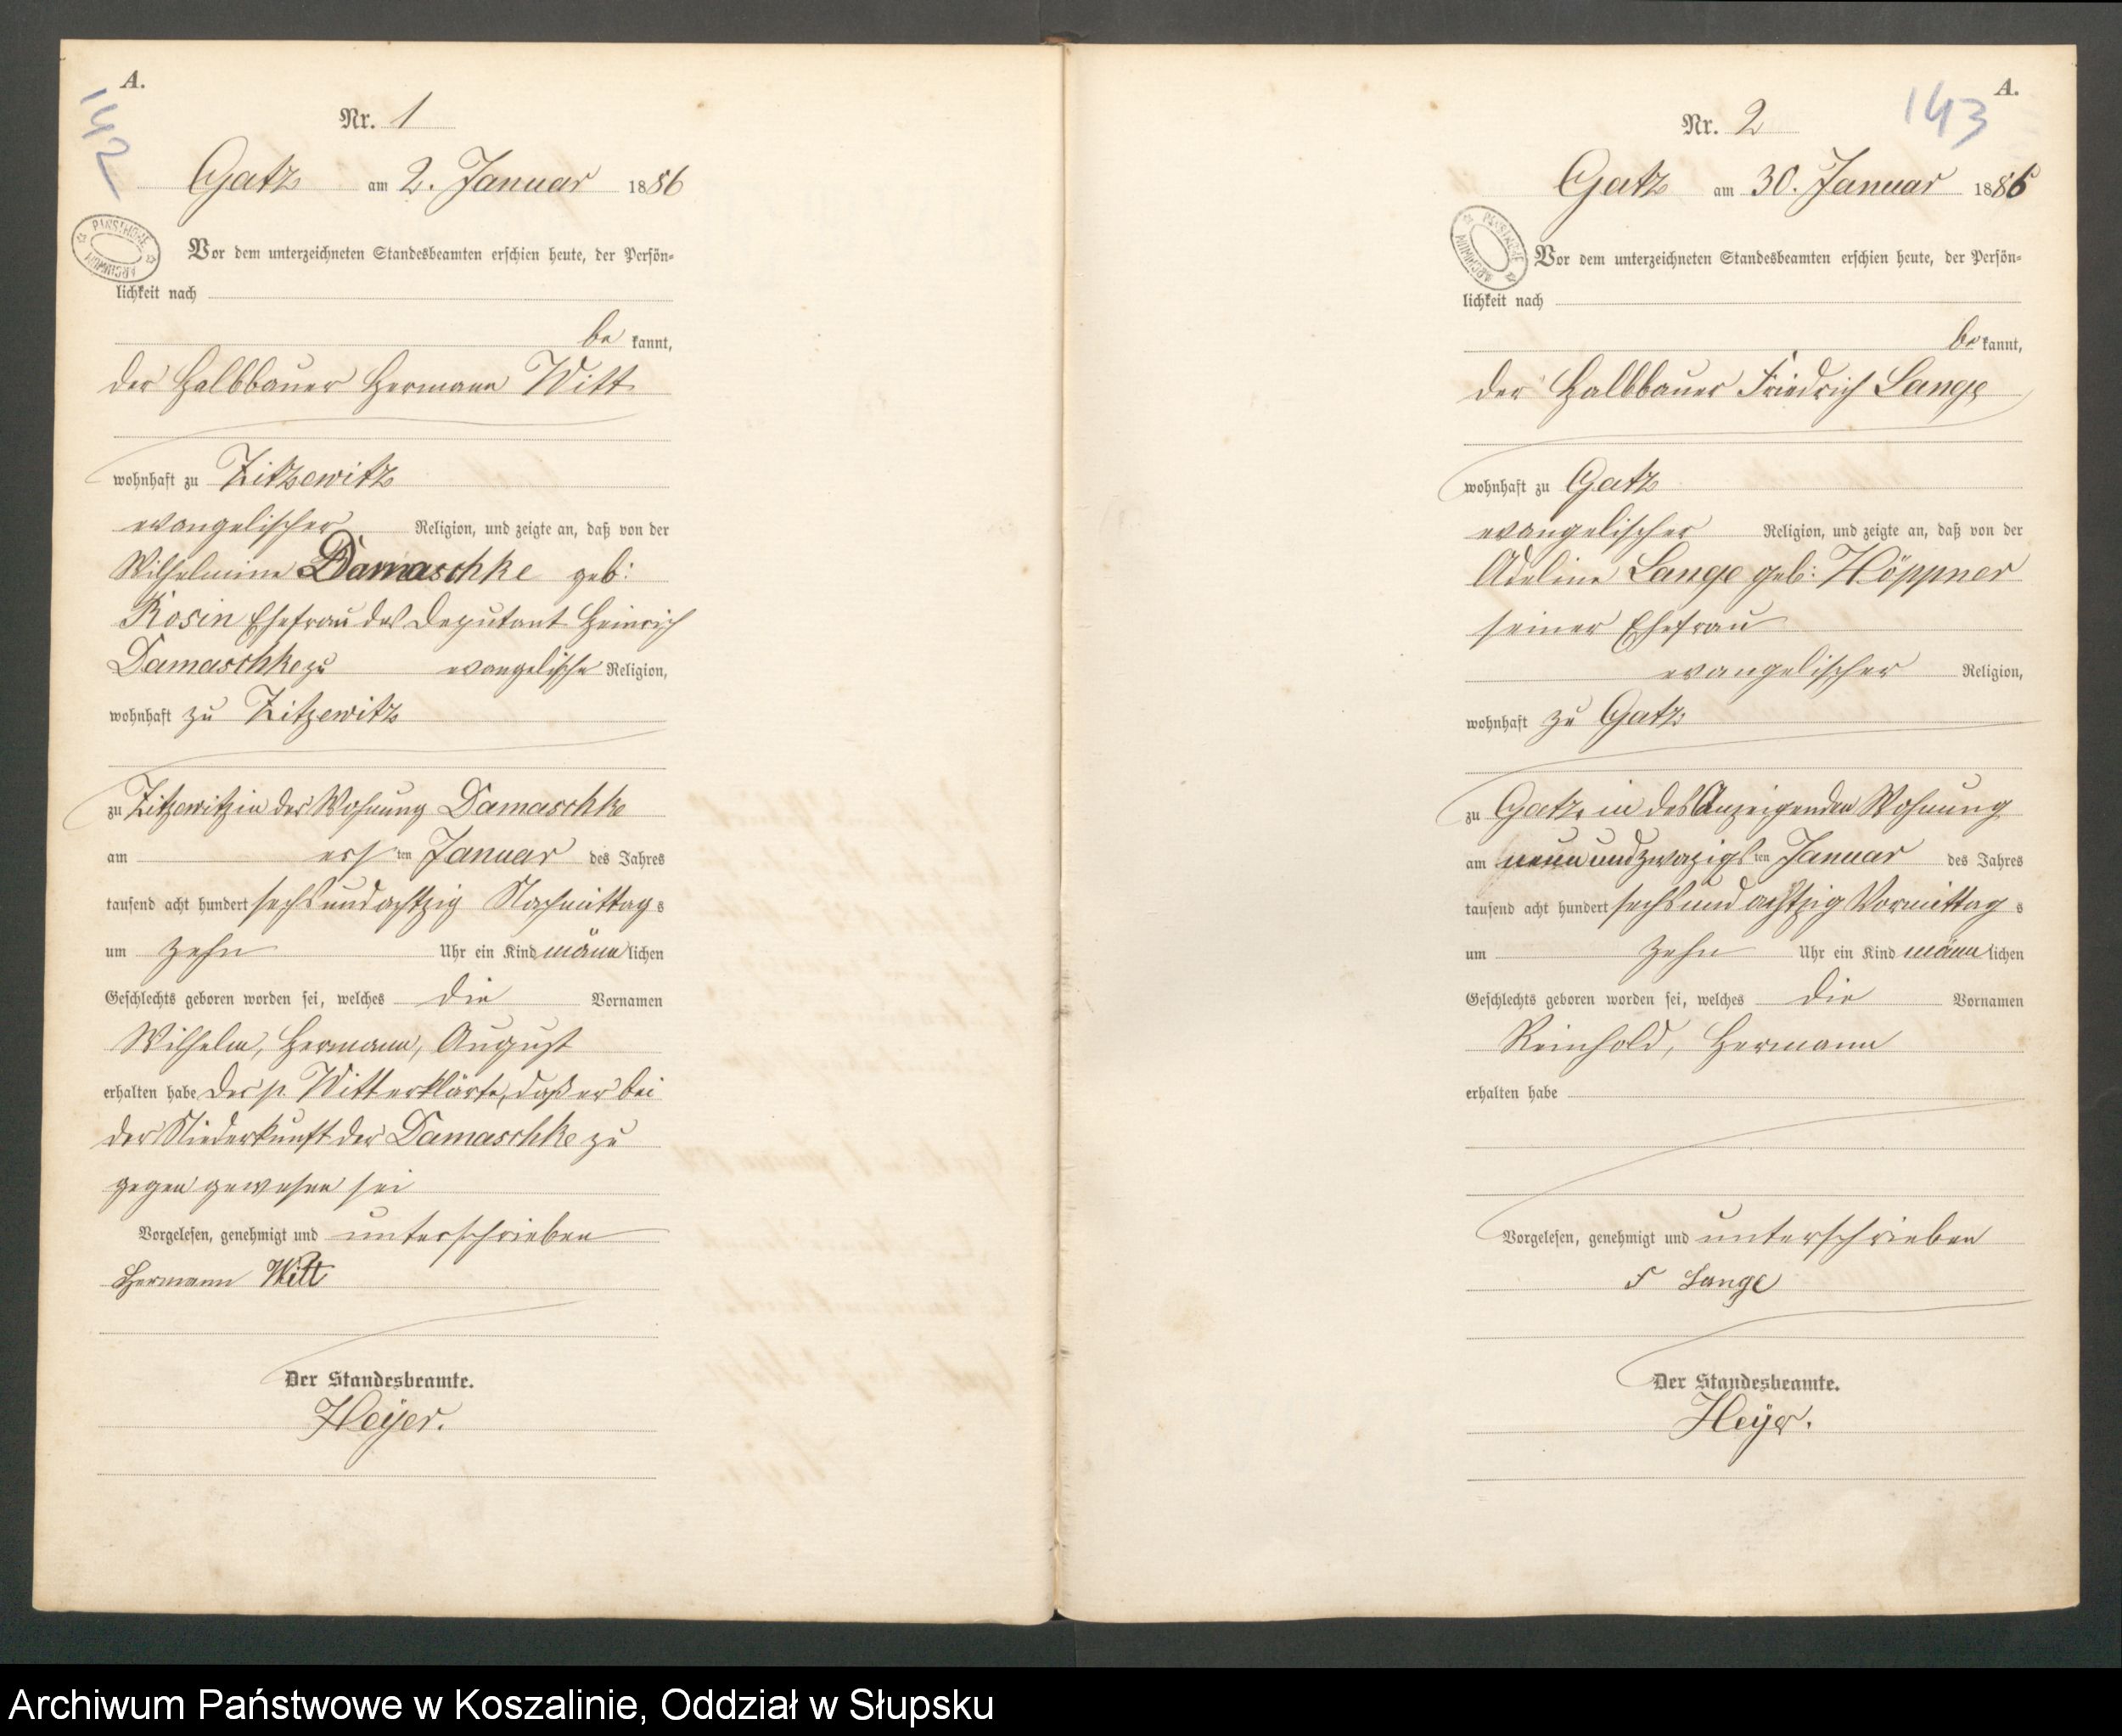 A.
142
Nr. 1
Gatz am 2. Januar 1886
Vor dem unterzeichneten Standesbeamten erschien heute, der Persön-
lichkeit nach
be kannt,
der Halbbauer Hermann Witt
wohnhaft zu Zitzewitz
evangelischer Religion, und zeigte an, daß von der
Wilhelmine Damaschke geb:
Rosin Ehefrau des Deputant Heinrich
Damaschke zu evangelische Religion,
wohnhaft zu Zitzewitz
zu Zitzewitz in der Wohnung Damaschke
am ersten Januar des Jahres
tausend acht hundert sechs und achtzig Nachmittags
um zehn Uhr ein Kind männlichen
Geschlechts geboren worden sei, welches die Vornamen
Wilhelm, Hermann, August
erhalten habe Der p. Witt erklärte, daß er bei
der Niederkunft der Damaschke zu
gegen gewesen sei
Vorgelesen, genehmigt und unterschrieben
Hermann Witt
Der Standesbeamte.
Heÿer.
A.
143
Nr. 2
Gatz am 30. Januar 1886
Vor dem unterzeichneten Standesbeamten erschien heute, der Persön-
lichkeit nach
be kannt,
der Halbbauer Friedrich Lange
wohnhaft zu Gatz
evangelischer Religion, und zeigte an, daß von der
Adeline Lange geb: Höppner
seiner Ehefrau
evangelischer Religion,
wohnhaft zu Gatz
zu Gatz in des Anzeigenden Wohnung
am neun und zwazigsten Januar des Jahres
tausend acht hundert sechs und achtzig Vormittags
um zehn Uhr ein Kind männlichen
Geschlechts geboren worden sei, welches die Vornamen
Reinhold, Hermann
erhalten habe
Vorgelesen, genehmigt und unterschrieben
F Lange
Der Standesbeamte.
Heÿer.
Archiwum Państwowe w Koszalinie, Oddział w Słupsku